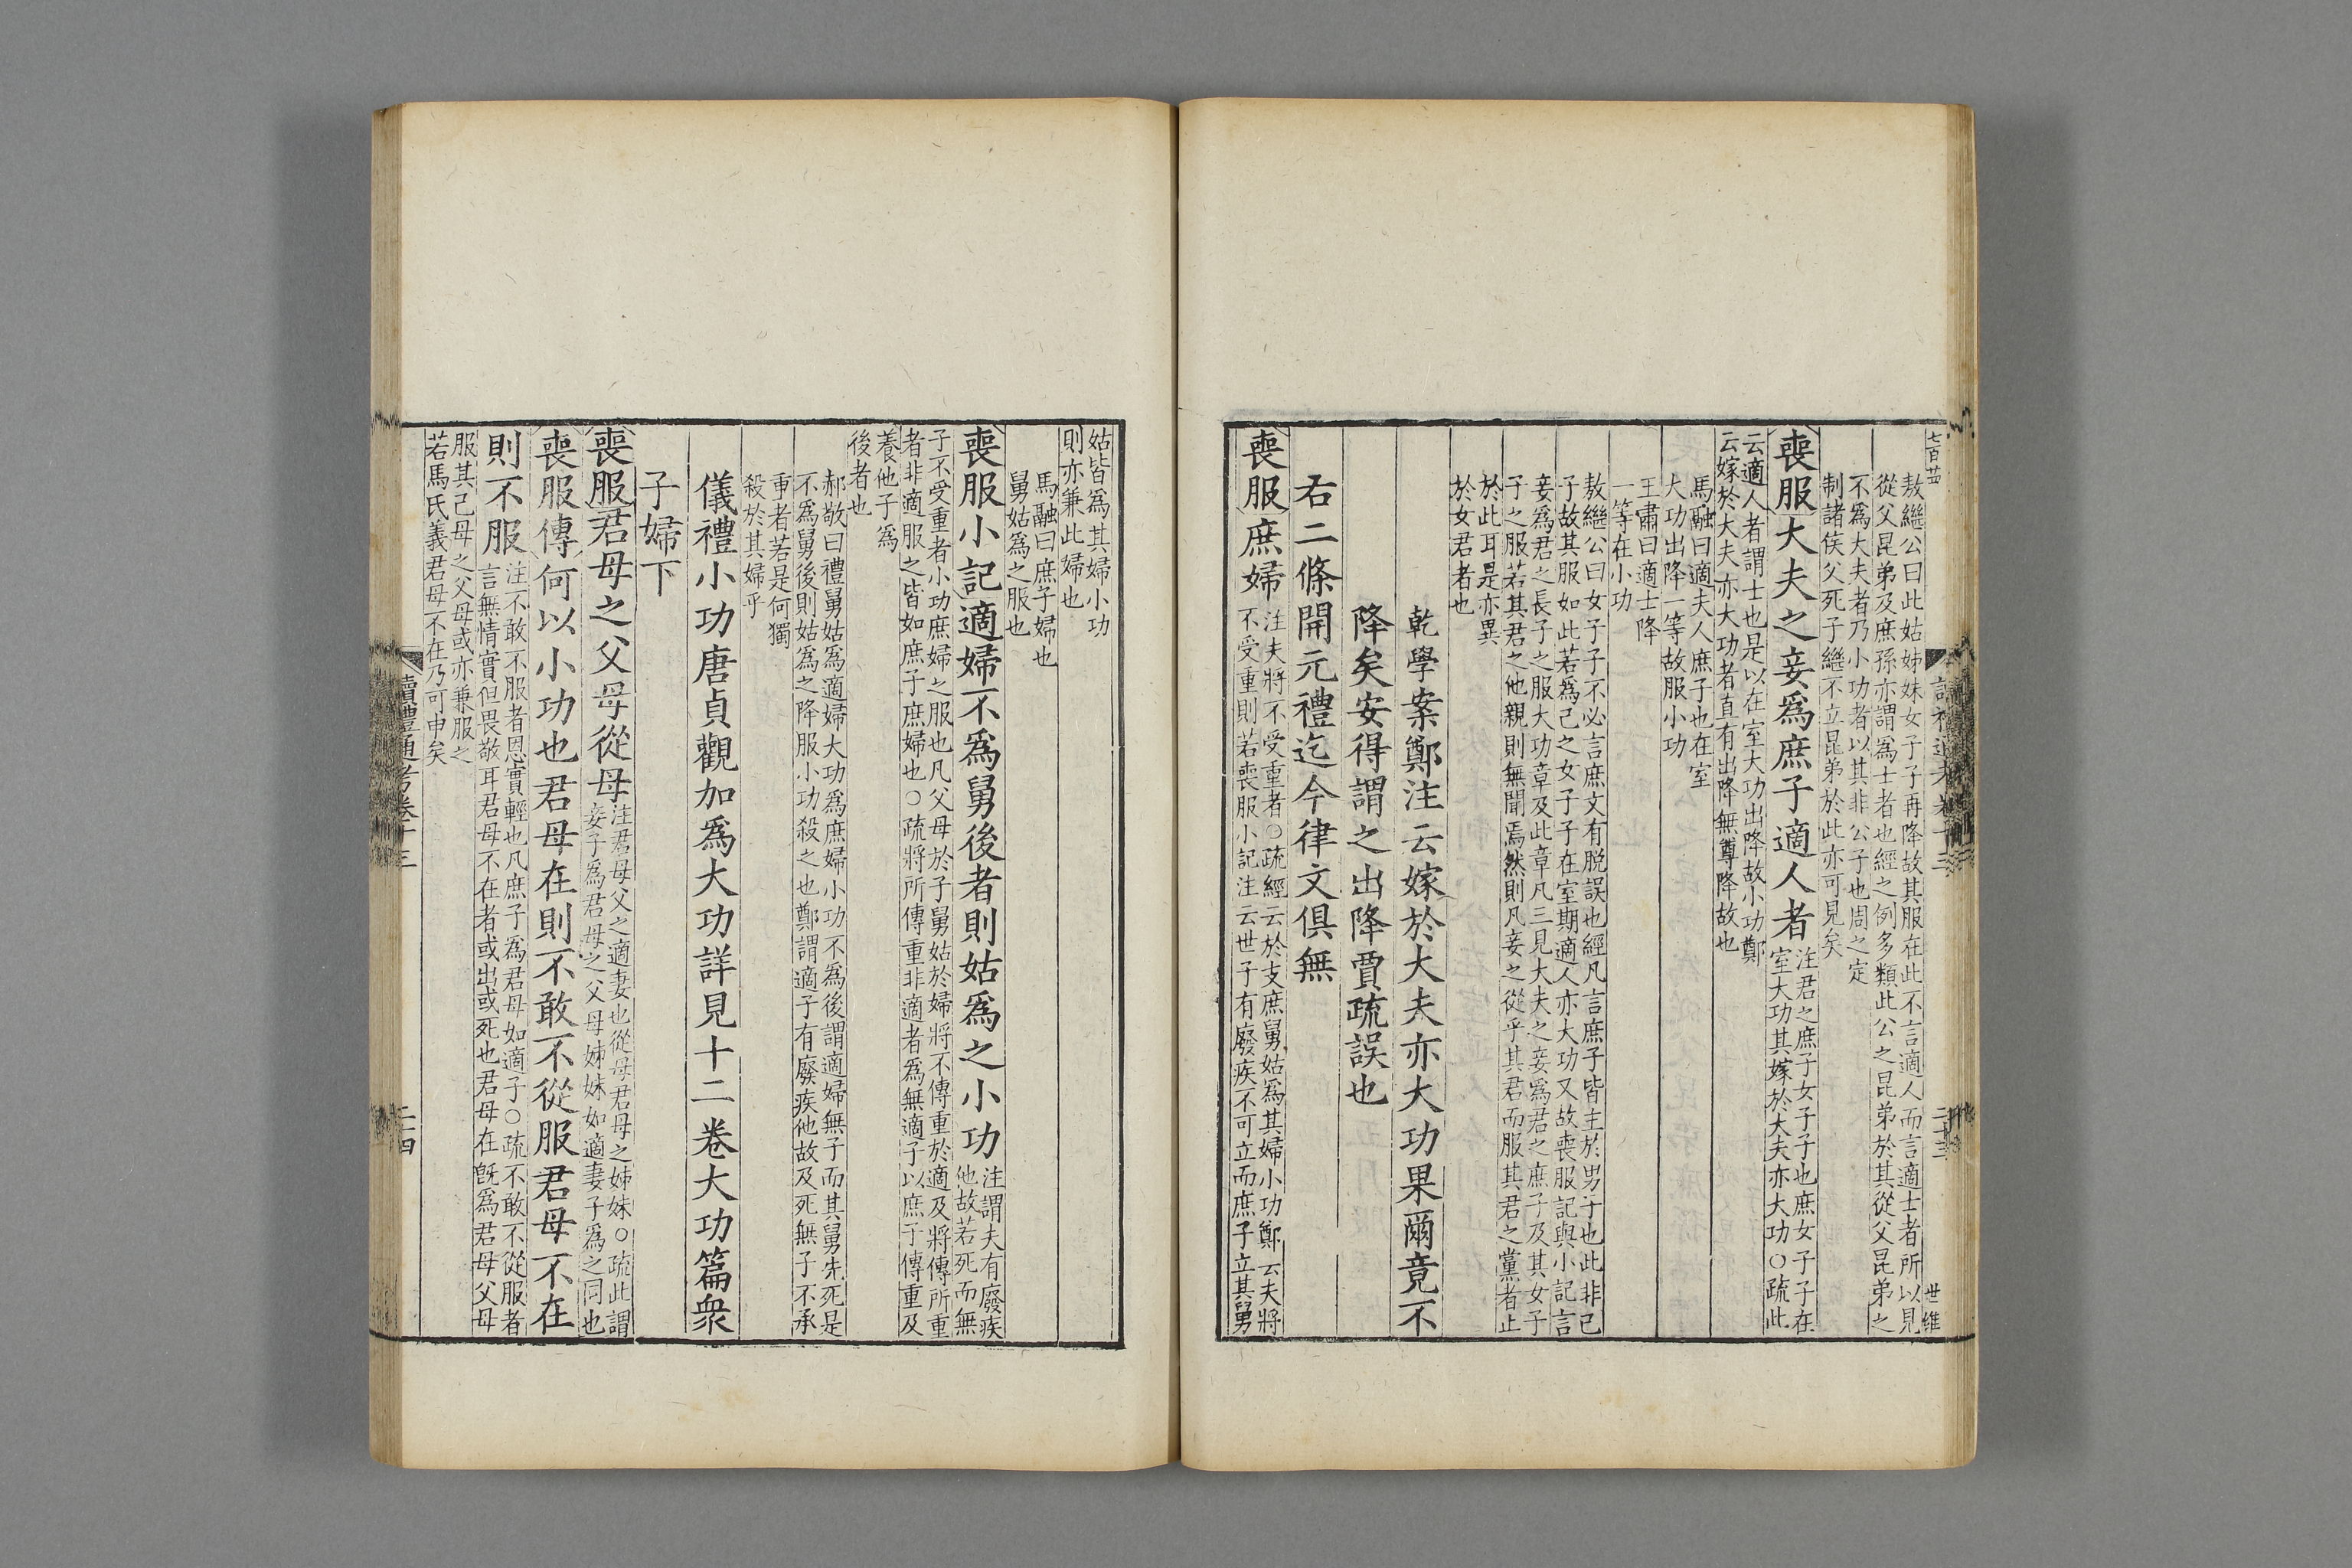 七百廿
讀禮通考卷十三
二十三
世維
敖繼公曰此姑姊妹女子子再降故其服在此不言適人而言適士者所以見
從父昆弟及庶孫亦謂爲士者也經之例多類此公之昆弟於其從父昆弟之
不爲大夫者乃小功者以其非公子也周之定
制諸侯父死子繼不立昆弟於此亦可見矣
喪服大夫之妾爲庶子適人者
注君之庶子女子子也庶女子子在
室大功其嫁於大夫亦大功○疏此
云適人者謂士也是以在室大功出降故小功鄭
云嫁於大夫亦大功者直有出降無尊降故也
馬融曰適夫人庶子也在室
大功出降一等故服小功
王肅曰適士降
一等在小功
敖繼公曰女子子不必言庶文有脫誤也經凡言庶子皆主於男子也此非己
子故其服如此若爲己之女子子在室期適人亦大功又故喪服記與小記言
妾爲君之長子之服大功章及此章凡三見大夫之妾爲君之庶子及其女子
子之服若其君之他親則無聞焉然則凡妾之從乎其君而服其君之黨者止
於此耳是亦異
於女君者也
乾學案鄭注云嫁於大夫亦大功果爾竟不
降矣安得謂之出降賈疏誤也
右二條開元禮迄今律文俱無
喪服庶婦
注夫將不受重者○疏經云於支庶舅姑爲其婦小功鄭云夫將
不受重則若喪服小記注云世子有廢疾不可立而庶子立其舅
姑皆爲其婦小功
則亦兼此婦也
馬融曰庶子婦也
舅姑爲之服也
喪服小記適婦不爲舅後者則姑爲之小功
注謂夫有廢疾
他故若死而無
子不受重者小功庶婦之服也凡父母於子舅姑於婦將不傳重於適及將傳所重
者非適服之皆如庶子庶婦也○疏將所傳重非適者爲無適子以庶子傳重及
養他子爲
後者也
郝敬曰禮舅姑爲適婦大功爲庶婦小功不爲後謂適婦無子而其舅先死是
不爲舅後則姑爲之降服小功殺之也鄭謂適子有廢疾他故及死無子不承
重者若是何獨
殺於其婦乎
儀禮小功唐貞觀加爲大功詳見十二卷大功篇衆
子婦下
喪服君母之父母從母
注君母父之適妻也從母君母之姊妹○疏此謂
妾子爲君母之父母姊妹如適妻子爲之同也
喪服傳何以小功也君母在則不敢不從服君母不在
則不服
注不敢不服者恩實輕也凡庶子爲君母如適子○疏不敢不從服者
言無情實但畏敬耳君母不在者或出或死也君母在旣爲君母父母
服其己母之父母或亦兼服之
若馬氏義君母不在乃可申矣
讀禮通考卷十三
二十四